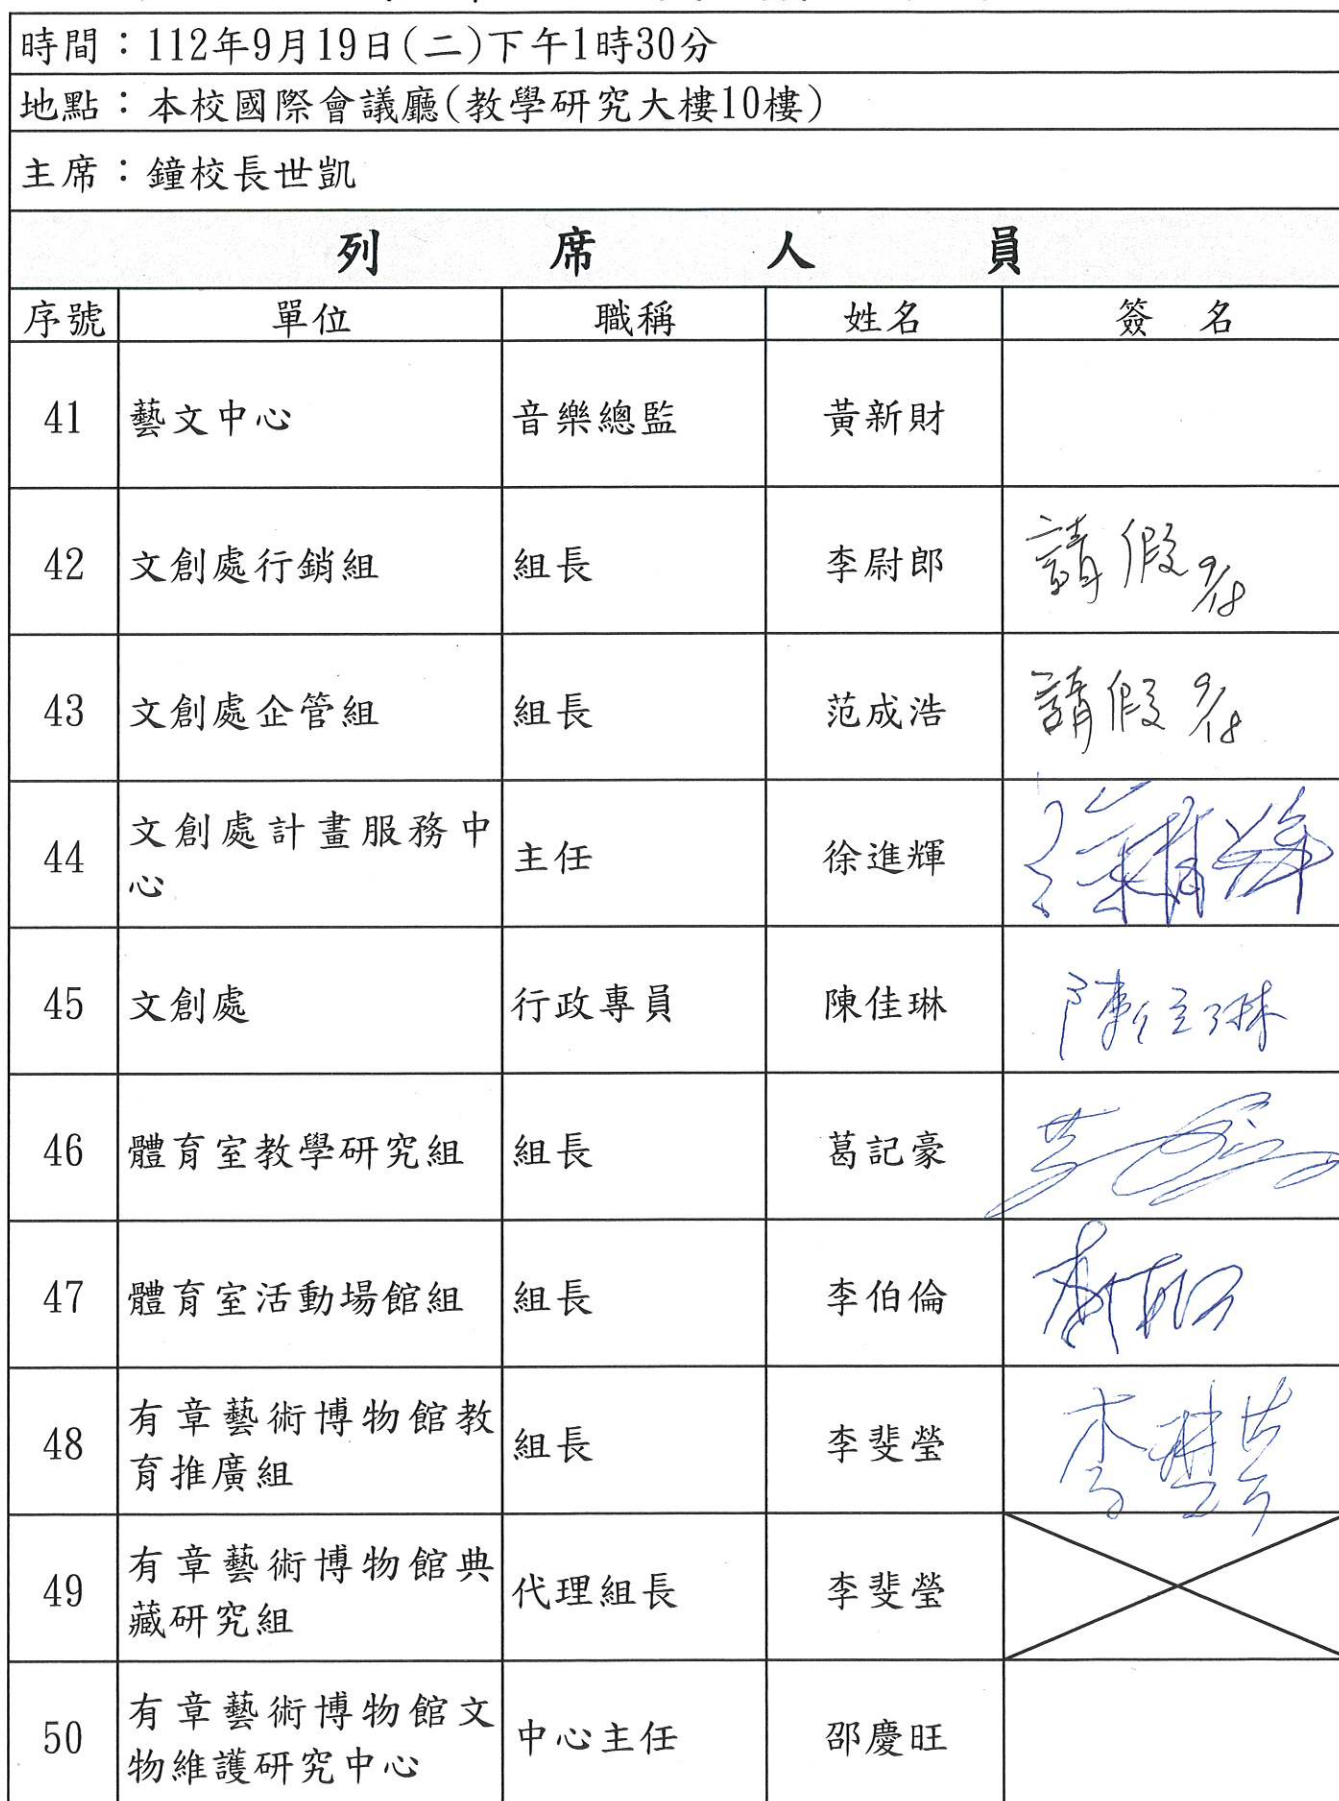 時間：112年9月19日(二)下午1時30分
地點：本校國際會議廳(教學研究大樓10樓)
主席：鐘校長世凱
列席人員
序號 單位 職稱 姓名 簽名
41 藝文中心 音樂總監 黃新財
42 文創處行銷組 組長 李尉郎 請假 9/18
43 文創處企管組 組長 范成浩 請假 9/18
44 文創處計畫服務中
心 主任 徐進輝 徐進輝
45 文創處 行政專員 陳佳琳 陳佳琳
46 體育室教學研究組 組長 葛記豪
47 體育室活動場館組 組長 李伯倫
48 有章藝術博物館教
育推廣組 組長 李斐瑩 李斐瑩
49 有章藝術博物館典
藏研究組 代理組長 李斐瑩
50 有章藝術博物館文
物維護研究中心 中心主任 邵慶旺